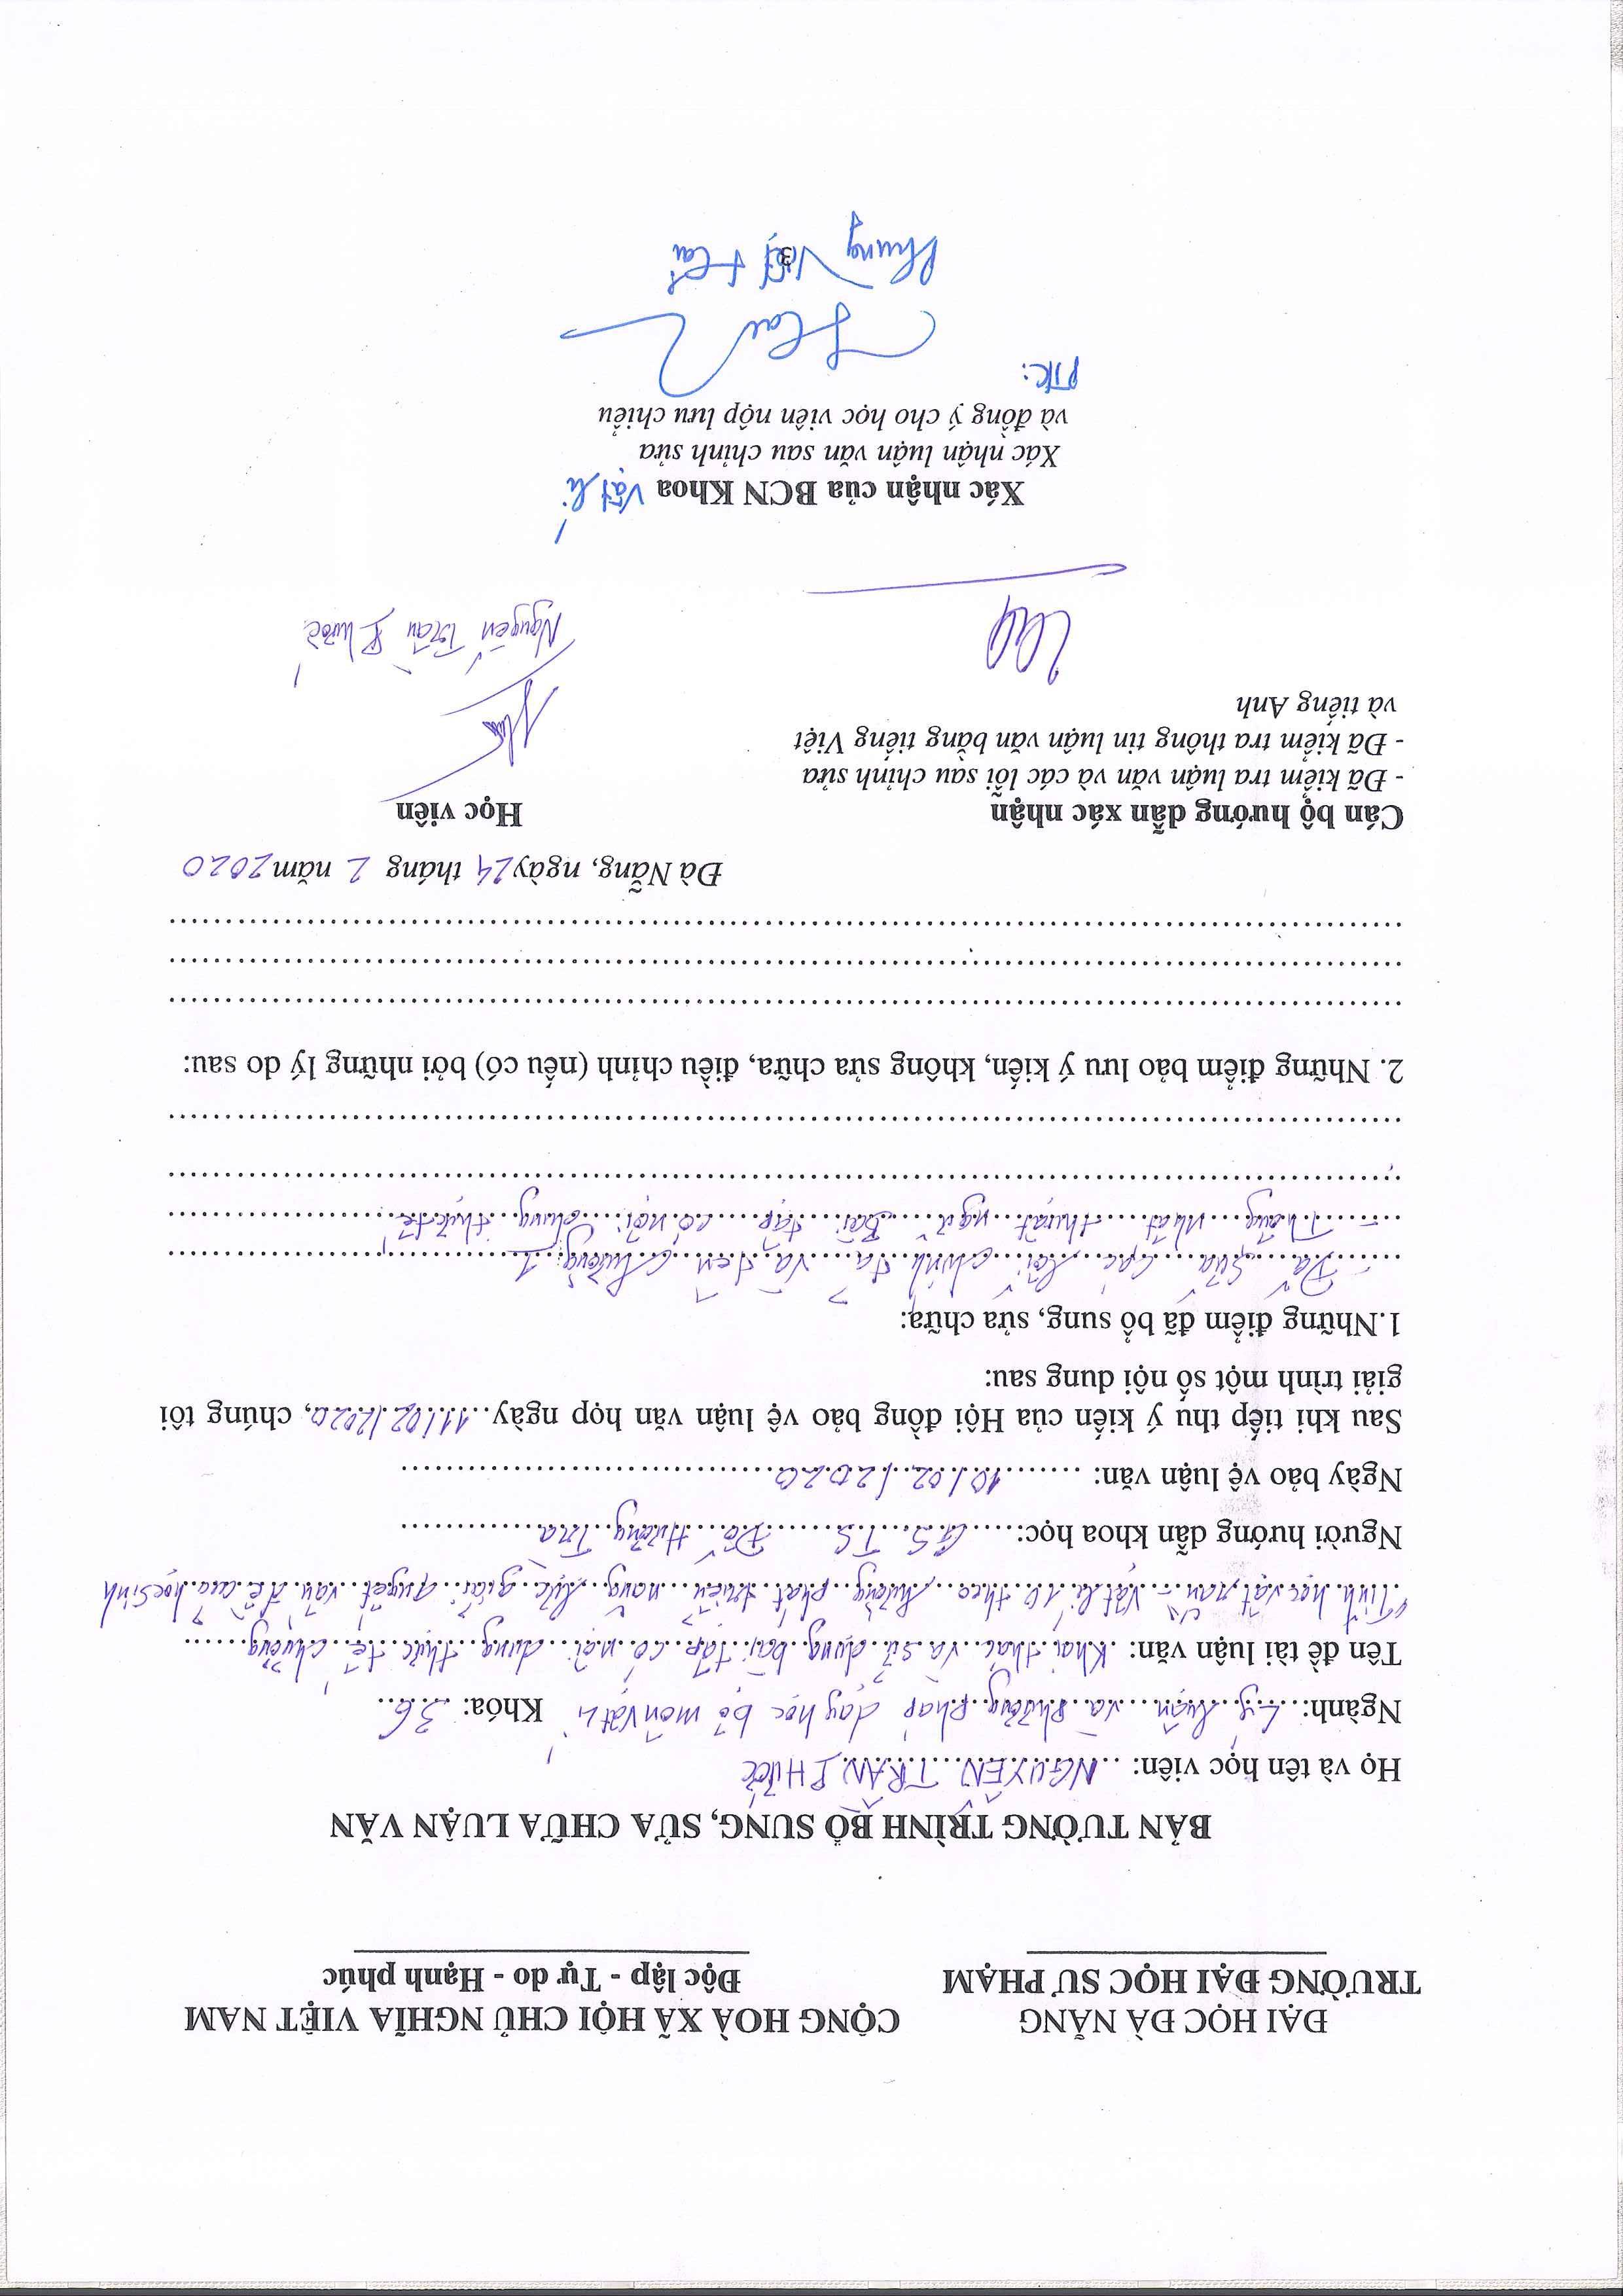 ĐẠI HỌC ĐÀ NẴNG
TRƯỜNG ĐẠI HỌC SƯ PHẠM
CỘNG HOÀ XÃ HỘI CHỦ NGHĨA VIỆT NAM
Độc lập - Tự do - Hạnh phúc
BẢN TƯỜNG TRÌNH BỔ SUNG, SỬA CHỮA LUẬN VĂN
Họ và tên học viên: NGUYỄN TRẦN PHƯỚC
Ngành: Lý luận và Phương pháp dạy học bộ môn Vật Lí Khóa: 36
Tên đề tài luận văn: Khai thác và sử dụng bài tập có nội dung thực tế chương
"Tĩnh học vật rắn" - Vật lí 10 theo hướng phát triển năng lực giải quyết vấn đề của học sinh
Người hướng dẫn khoa học: GS.TS Đỗ Hương Trà
Ngày bảo vệ luận văn: 10/02/2020
Sau khi tiếp thu ý kiến của Hội đồng bảo vệ luận văn họp ngày 11/02/2020, chúng tôi
giải trình một số nội dung sau:
1.Những điểm đã bổ sung, sửa chữa:
- Đã sửa các lỗi chính tả và tên chương 1
- Thống nhất thuật ngữ Bài tập có nội dung thực tế
2. Những điểm bảo lưu ý kiến, không sửa chữa, điều chỉnh (nếu có) bởi những lý do sau:
Đà Nẵng, ngày 24 tháng 2 năm 2020
Cán bộ hướng dẫn xác nhận
- Đã kiểm tra luận văn và các lỗi sau chỉnh sửa
- Đã kiểm tra thông tin luận văn bằng tiếng Việt
và tiếng Anh
Học viên
Nguyễn Trần Phước
Xác nhận của BCN Khoa Vật lí
Xác nhận luận văn sau chỉnh sửa
và đồng ý cho học viên nộp lưu chiểu
PTK:
Phùng Việt Hải
3